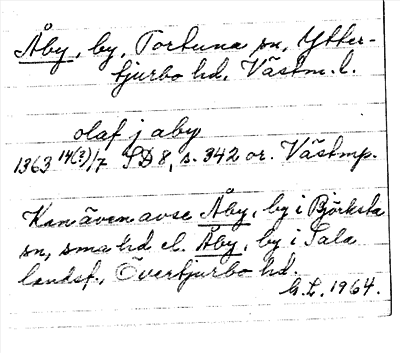 Åby, by, Tortuna sn, Ytter-
tjurbo hd, Västm. l.
olaf j aby
1363 14(?)/7 SD 8, s. 342 or. Västmp.
Kan även avse Åby, by i Björksta
sn, sma hd el. Åby, by i Sala
landsf., Övertjurbo hd.
G.L. 1964.